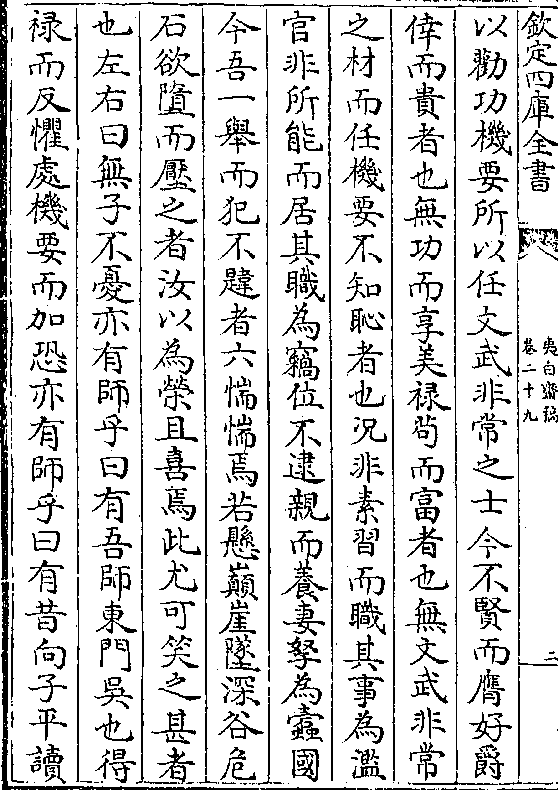 欽定四庫全書
夷白齋稿
卷二十九
三
以勸功機要所以任文武非常之士今不賢而膺好爵
倖而貴者也無功而享美禄茍而富者也無文武非常
之材而任機要不知恥者也况非素習而職其事為濫
官非所能而居其職為竊位不逮親而養妻孥為蠹國
今吾一舉而犯不韙者六惴惴焉若懸巔崖墜深谷危
石欲墮而壓之者汝以為榮且喜焉此尤可笑之甚者
也左右曰無子不憂亦有師乎曰有吾師東門吳也得
禄而反懼處機要而加恐亦有師乎曰有昔向子平讀